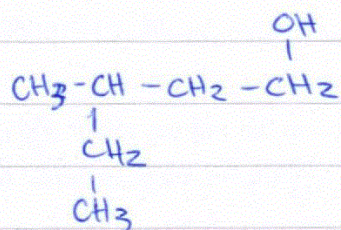 OH
CH3-CH-CH2-CH2
CH2
CH3